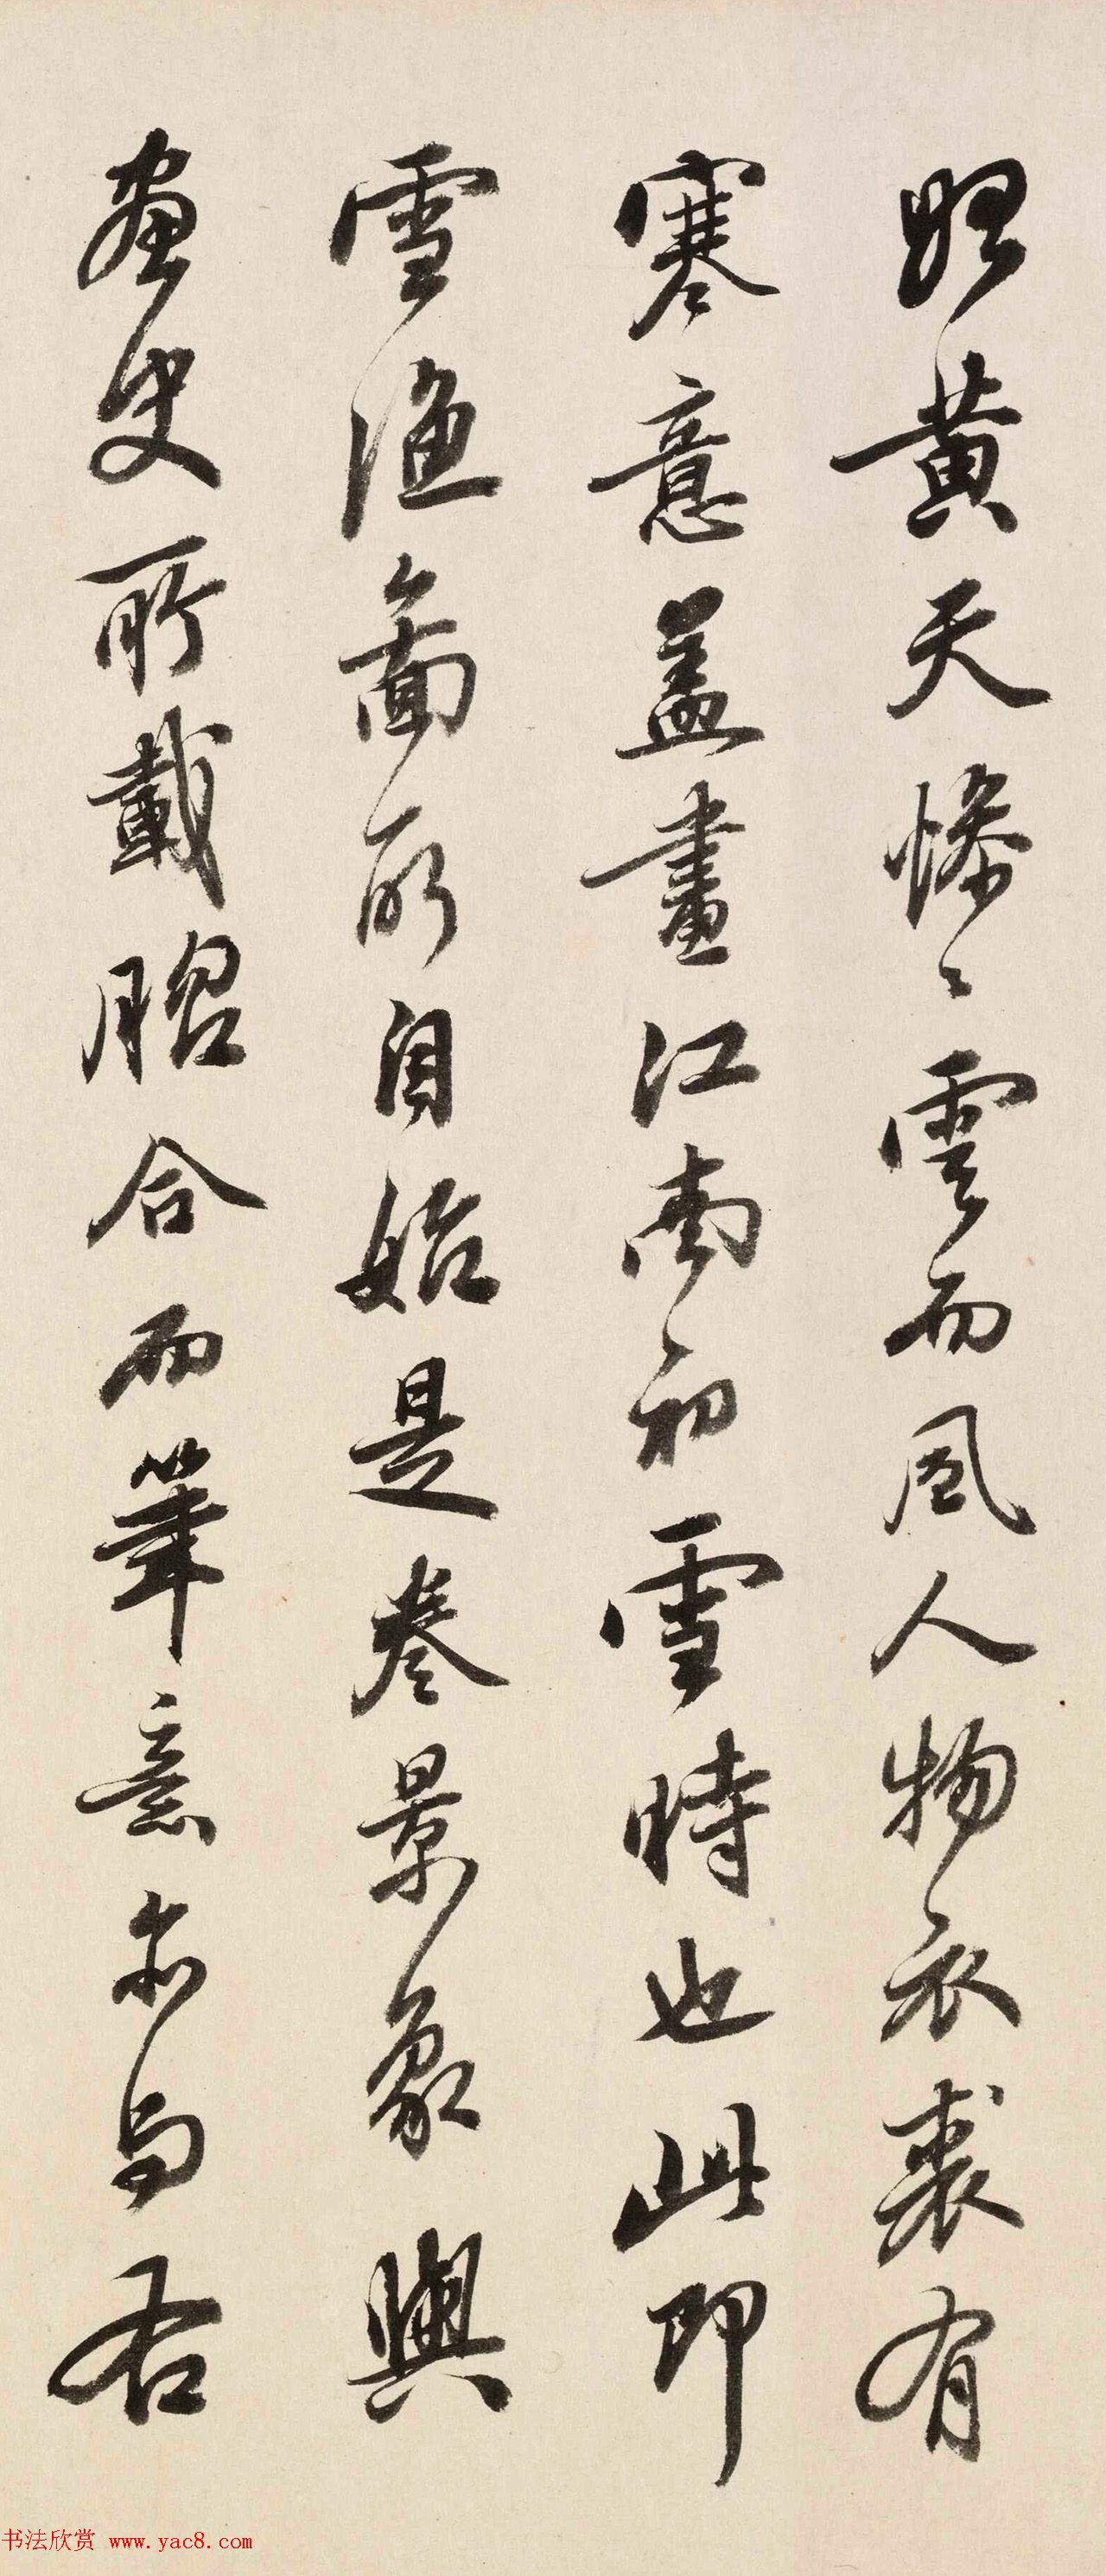 昭黄天惨〻雲而風人物衣裘有
寒意盖畫江南初雪時也此即
雪漁圖所自始是卷景象與
畫史所載脗合而筆意亦与右
书法欣赏 www.yac8.com